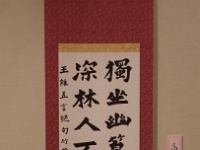 獨坐幽篁
深林人不
王維五言絶句竹里